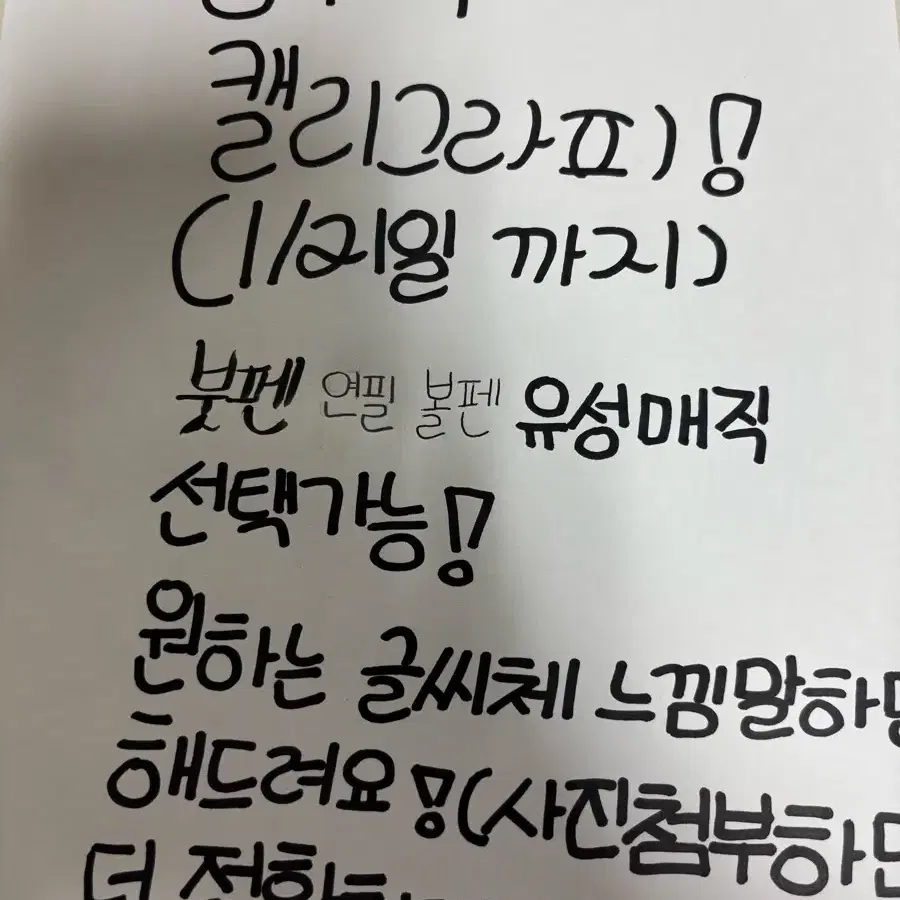 캘리그라피!
(1/21일 까지)
붓펜 연필 볼펜 유성매직
선택가능!
원하는 글씨체 느낌말하면
해드려요!(사진첨부하면
더